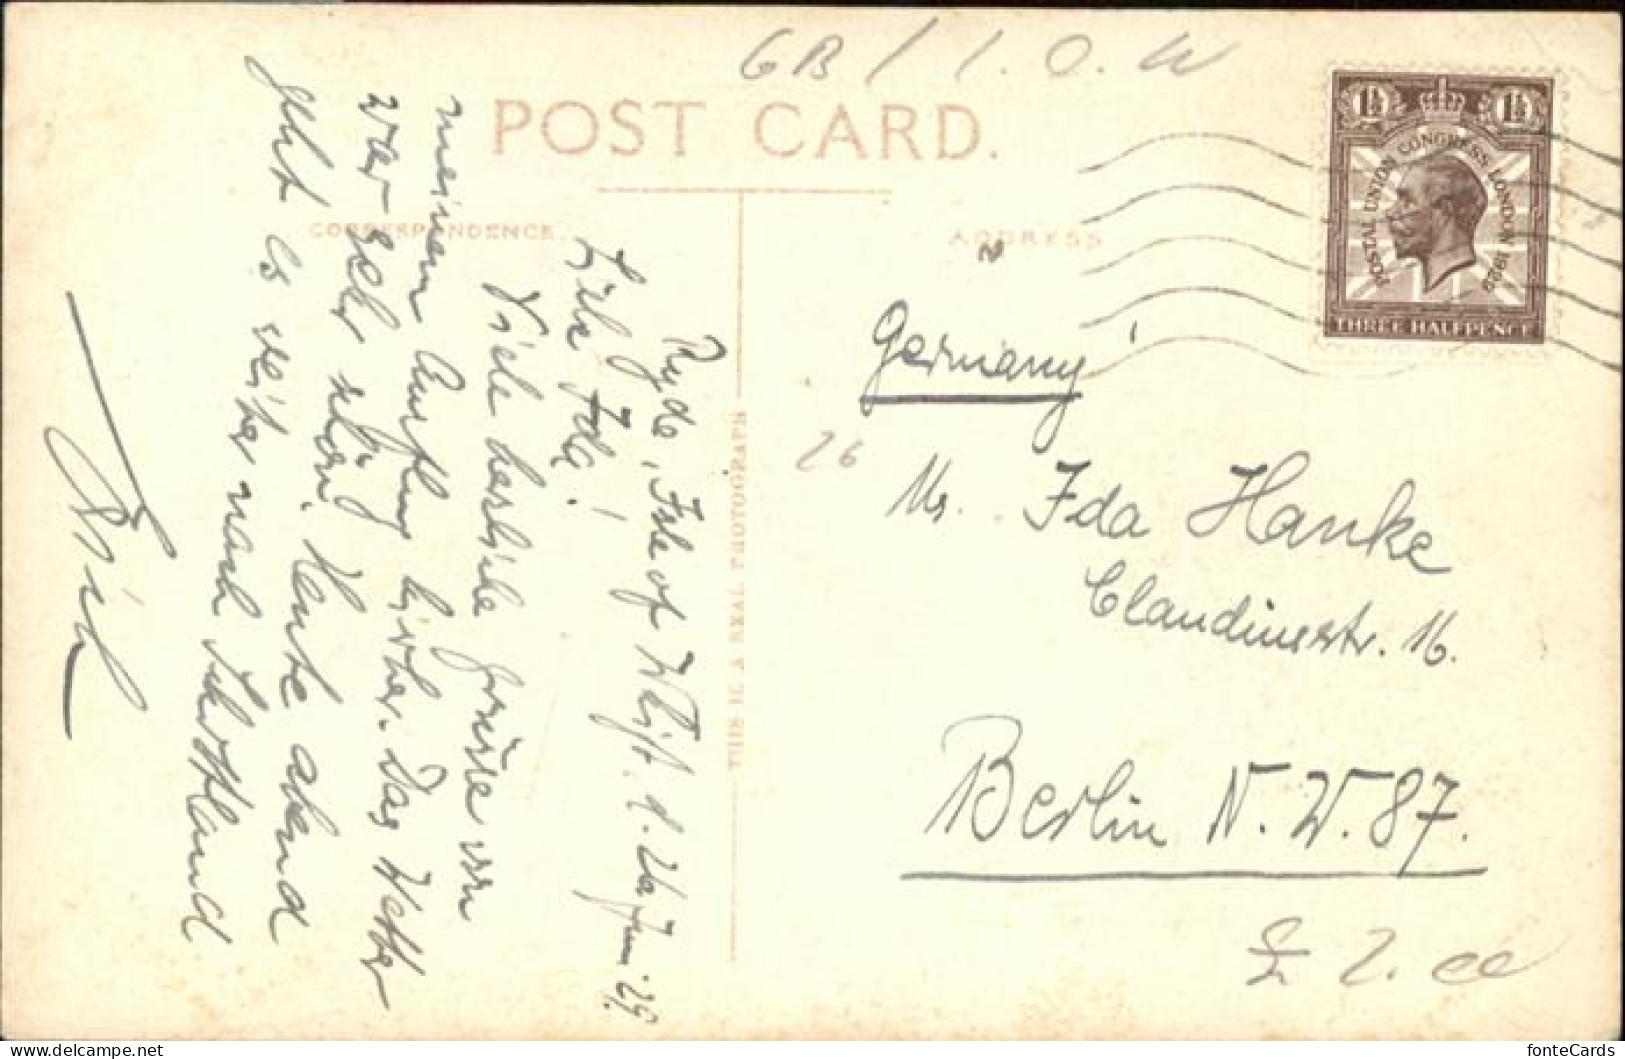 GB / I. O. W
POST CARD.
CORRESPONDENCE.
ADDRESS
1½ 1½
POSTAL UNION CONGRESS LONDON 1929
THREE HALFPENCE
Ryde, Isle of Wight. d. 26 Juni 29.
Liebe Ida!
Viele herzliche Grüsse von
meinem Ausflug hierher. Das Wetter
war sehr schön. Heute abend
geht es weiter nach Schottland
THIS IS A REAL PHOTOGRAPH
Germany
26
Ms. Ida Hanke
Claudiusstr. 16.
Berlin N.W.87.
£ 2.00
fonteCards
delcampe.net